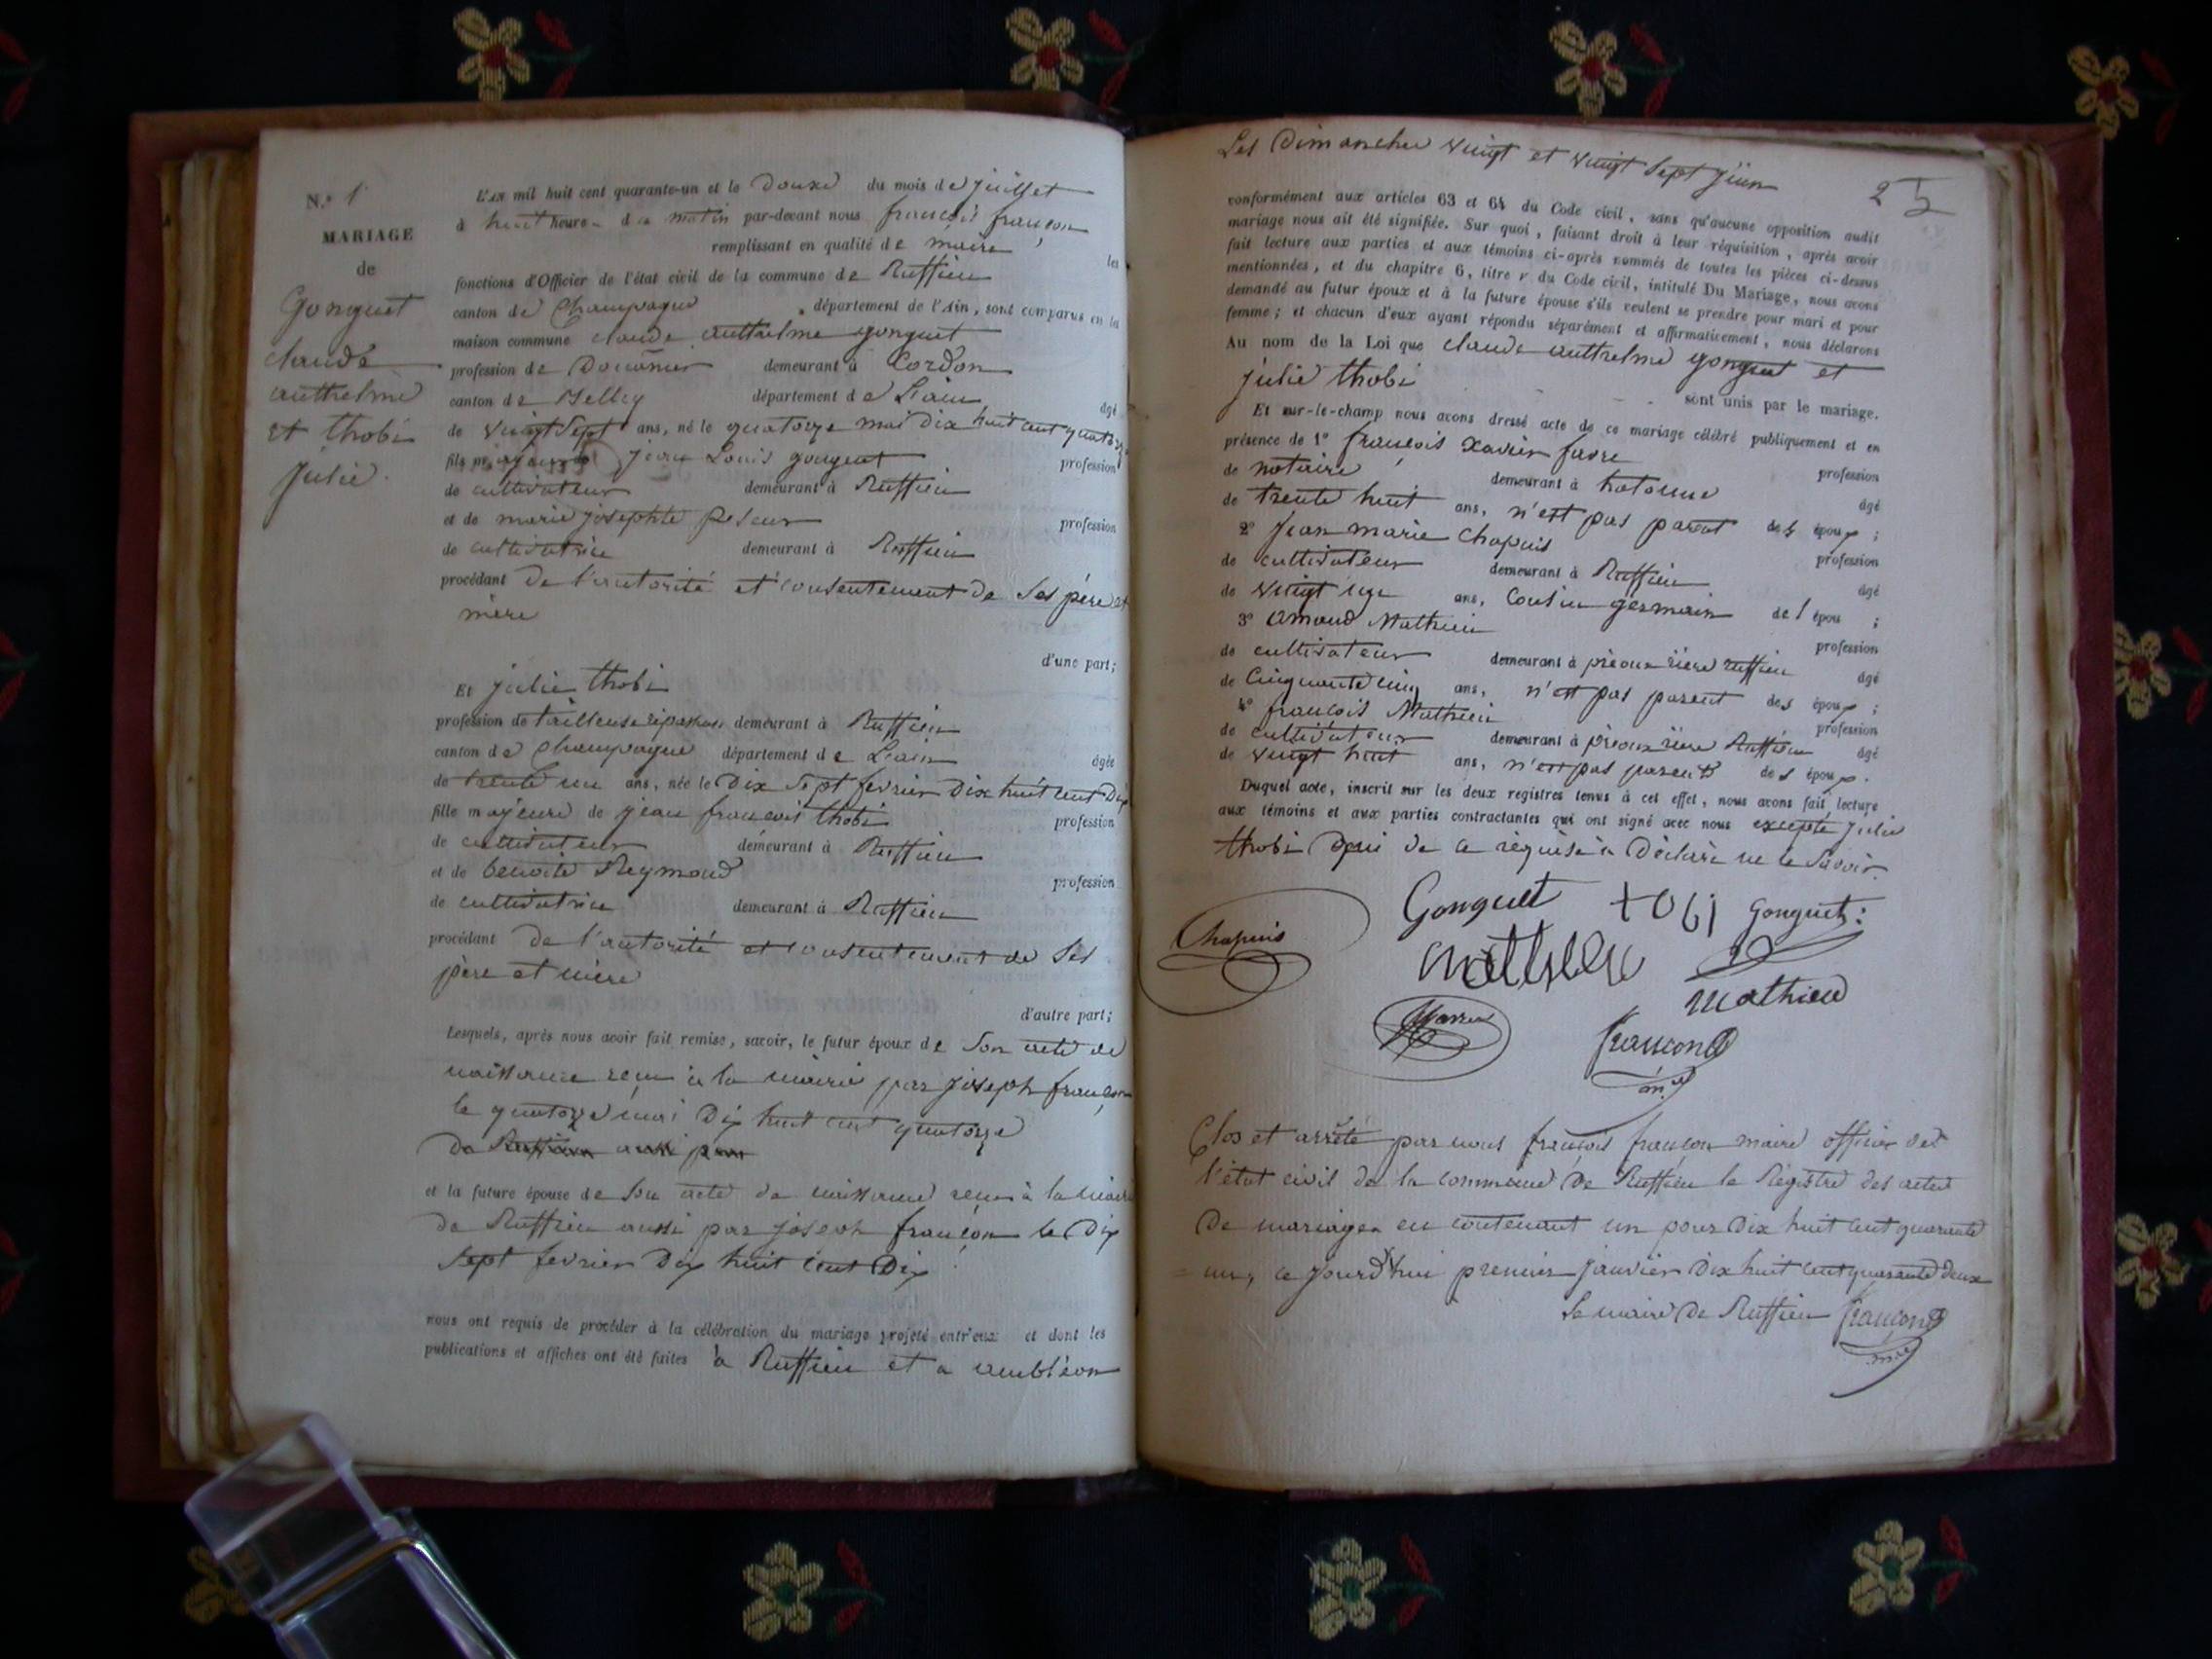 N.º 1
MARIAGE
de
Gonguet
claude
anthelme
et thobi
julie.
L'AN mil huit cent quarante-un et le Douze du mois de juillet
à huit heure du matin par-devant nous françois françon
remplissant en qualité de maire les
fonctions d'Officier de l'état civil de la commune de Ruffieu
canton de Champagne département de l'Ain, sont comparus en la
maison commune claude anthelme gonguet
profession de Douanier demeurant à Cordon
canton de Belley département de L'ain âgé
de vingt sept ans, né le quatorze mai dix huit cent quatorze
fils majeur de jean Louis gonguet profession
de cultivateur demeurant à Ruffieu
et de marie josephte profession
de cultivatrice demeurant à Ruffieu
procédant de l'autorité et consentement de ses père et
mère
d'une part;
Et julie thobi
profession de tailleuse demeurant à Ruffieu
canton de Champagne département de L'ain âgée
de trente un ans, née le Dix sept fevrier Dix huit cent Dix
fille majeure de jean françois thobi profession
de cultivateur demeurant à Ruffieu
et de benoite Reymond profession
de cultivatrice demeurant à Ruffieu
procédant de l'autorité et consentement de ses
père et mère
d'autre part;
Lesquels, après nous avoir fait remise, savoir, le futur époux de son acte de
naissance recu à la mairie par joseph françon
le quatorze mai Dix huit cent quatorze
de Ruffieu aussi par
et la future épouse de son acte de naissance recu à la mairie
de Ruffieu aussi par joseph françon le Dix
sept fevrier Dix huit cent Dix
nous ont requis de procéder à la célébration du mariage projeté entr'eux et dont les
publications et affiches ont été faites à Ruffieu et a ambléon
Les Dimanches vingt et vingt sept juin
25
conformément aux articles 63 et 64 du Code civil, sans qu'aucune opposition audit
mariage nous ait été signifiée. Sur quoi, faisant droit à leur réquisition, après avoir
fait lecture aux parties et aux témoins ci-après nommés de toutes les pièces ci-dessus
mentionnées, et du chapitre 6, titre v du Code civil, intitulé Du Mariage, nous avons
demandé au futur époux et à la future épouse s'ils veulent se prendre pour mari et pour
femme; et chacun d'eux ayant répondu séparément et affirmativement, nous déclarons
Au nom de la Loi que claude anthelme gonguet et
julie thobi sont unis par le mariage.
Et sur-le-champ nous avons dressé acte de ce mariage célébré publiquement et en
présence de 1º françois xavier favre profession
de notaire demeurant à hotonne âgé
de trente huit ans, n'est pas parent des époux;
2º jean marie Chapuis profession
de cultivateur demeurant à Ruffieu âgé
de vingt six ans, cousin germain de l'épou;
3º amand Mathieu profession
de cultivateur demeurant à prioux rière ruffieu âgé
de Cinquante cinq ans, n'est pas parent des époux;
4º françois Mathieu profession
de cultivateur demeurant à prioux rière Ruffieu âgé
de vingt huit ans, n'est pas parent des époux.
Duquel acte, inscrit sur les deux registres tenus à cet effet, nous avons fait lecture
aux témoins et aux parties contractantes qui ont signé avec nous excepté julie
thobi qui de ce requise a Déclaré ne le savoir.
Gonguet tobi gonguet
Chapuis
mathieu
mathieu
françon
m.re
Clos et arrêté par nous françois françon maire officier de
l'état civil de la commune de Ruffieu le Régistre des actes
De mariages en contenant un pour Dix huit cent quarante
un, ce jourd'hui premier janvier Dix huit cent quarante deux
Le maire de Ruffieu françon
m.re